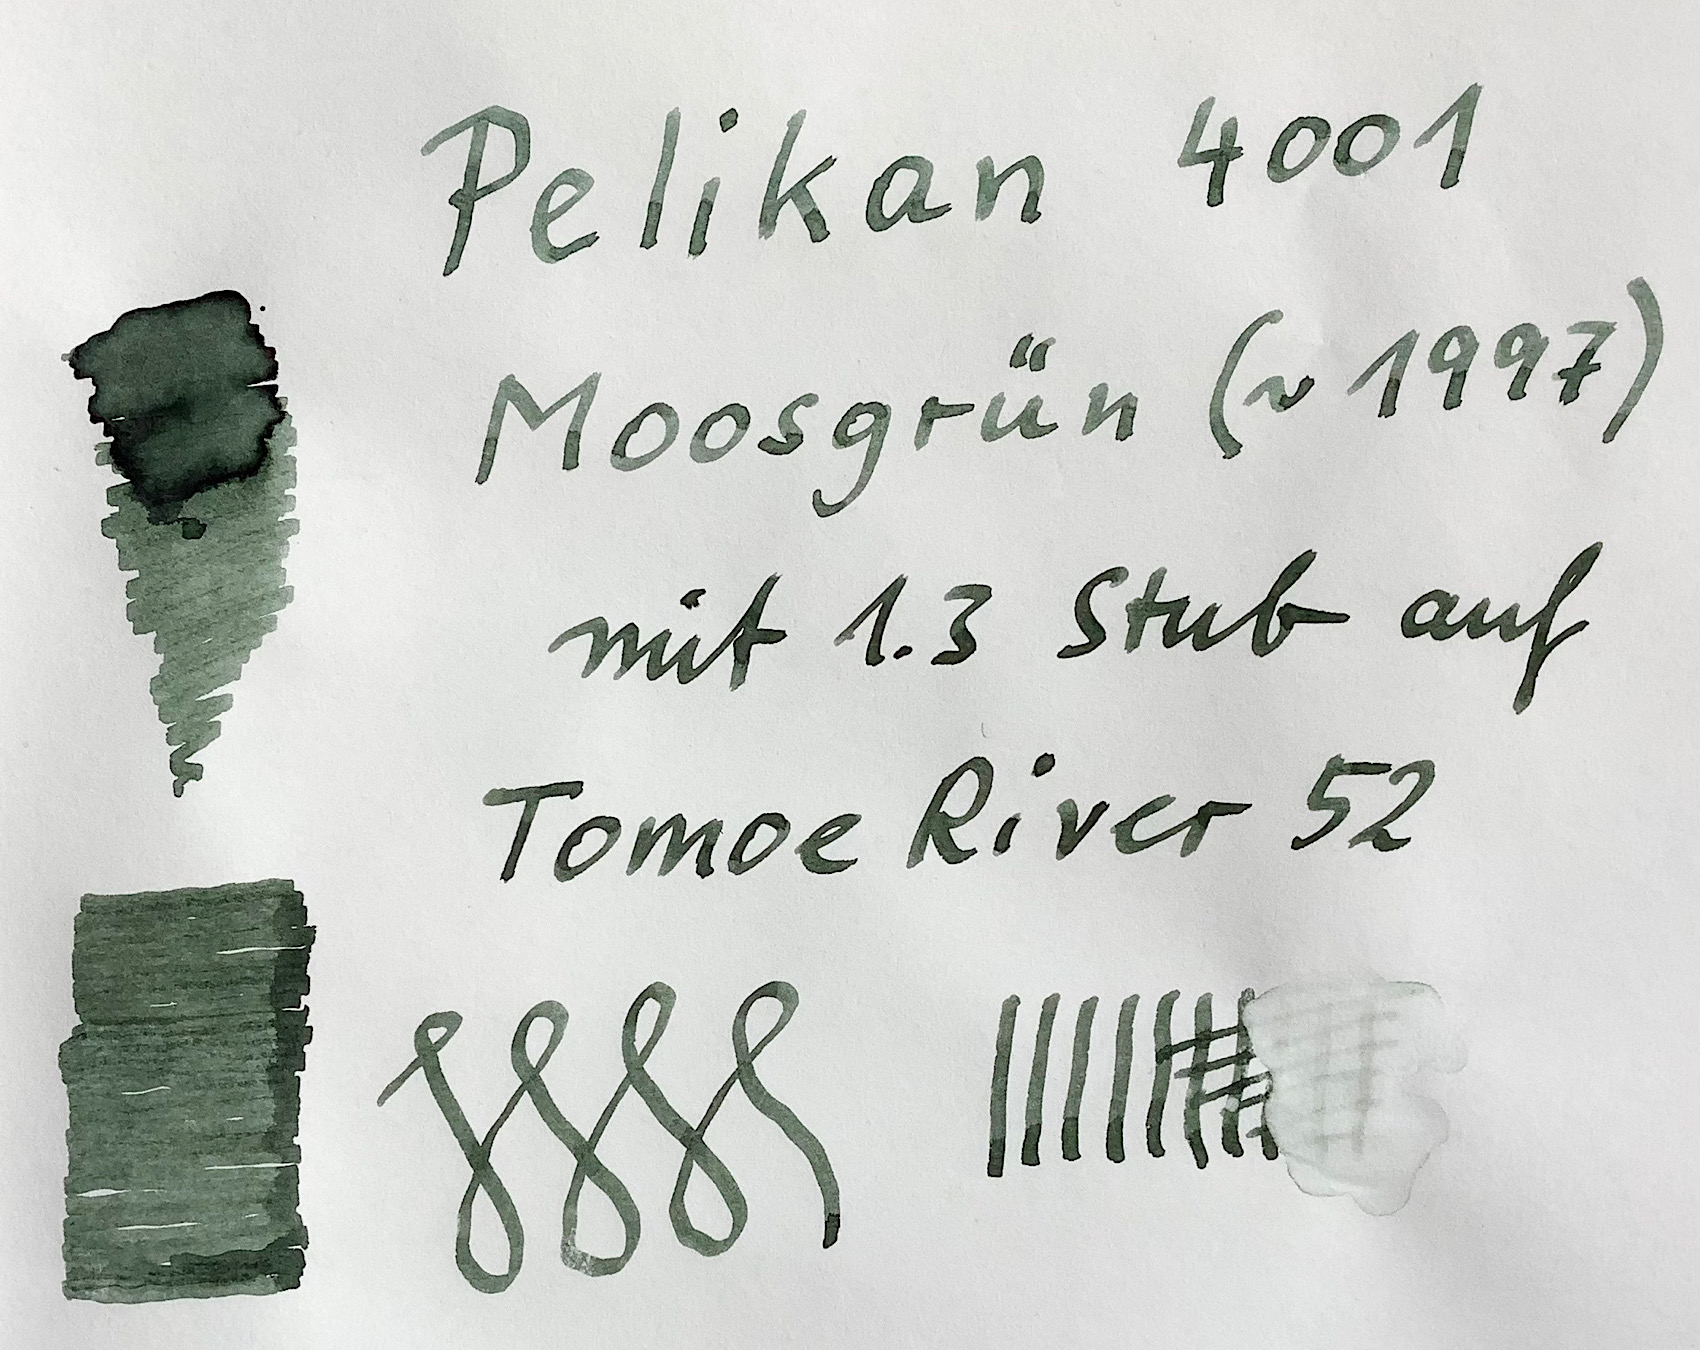 Pelikan 4001
Moosgrün (~ 1997)
mit 1.3 Stub auf
Tomoe River 52